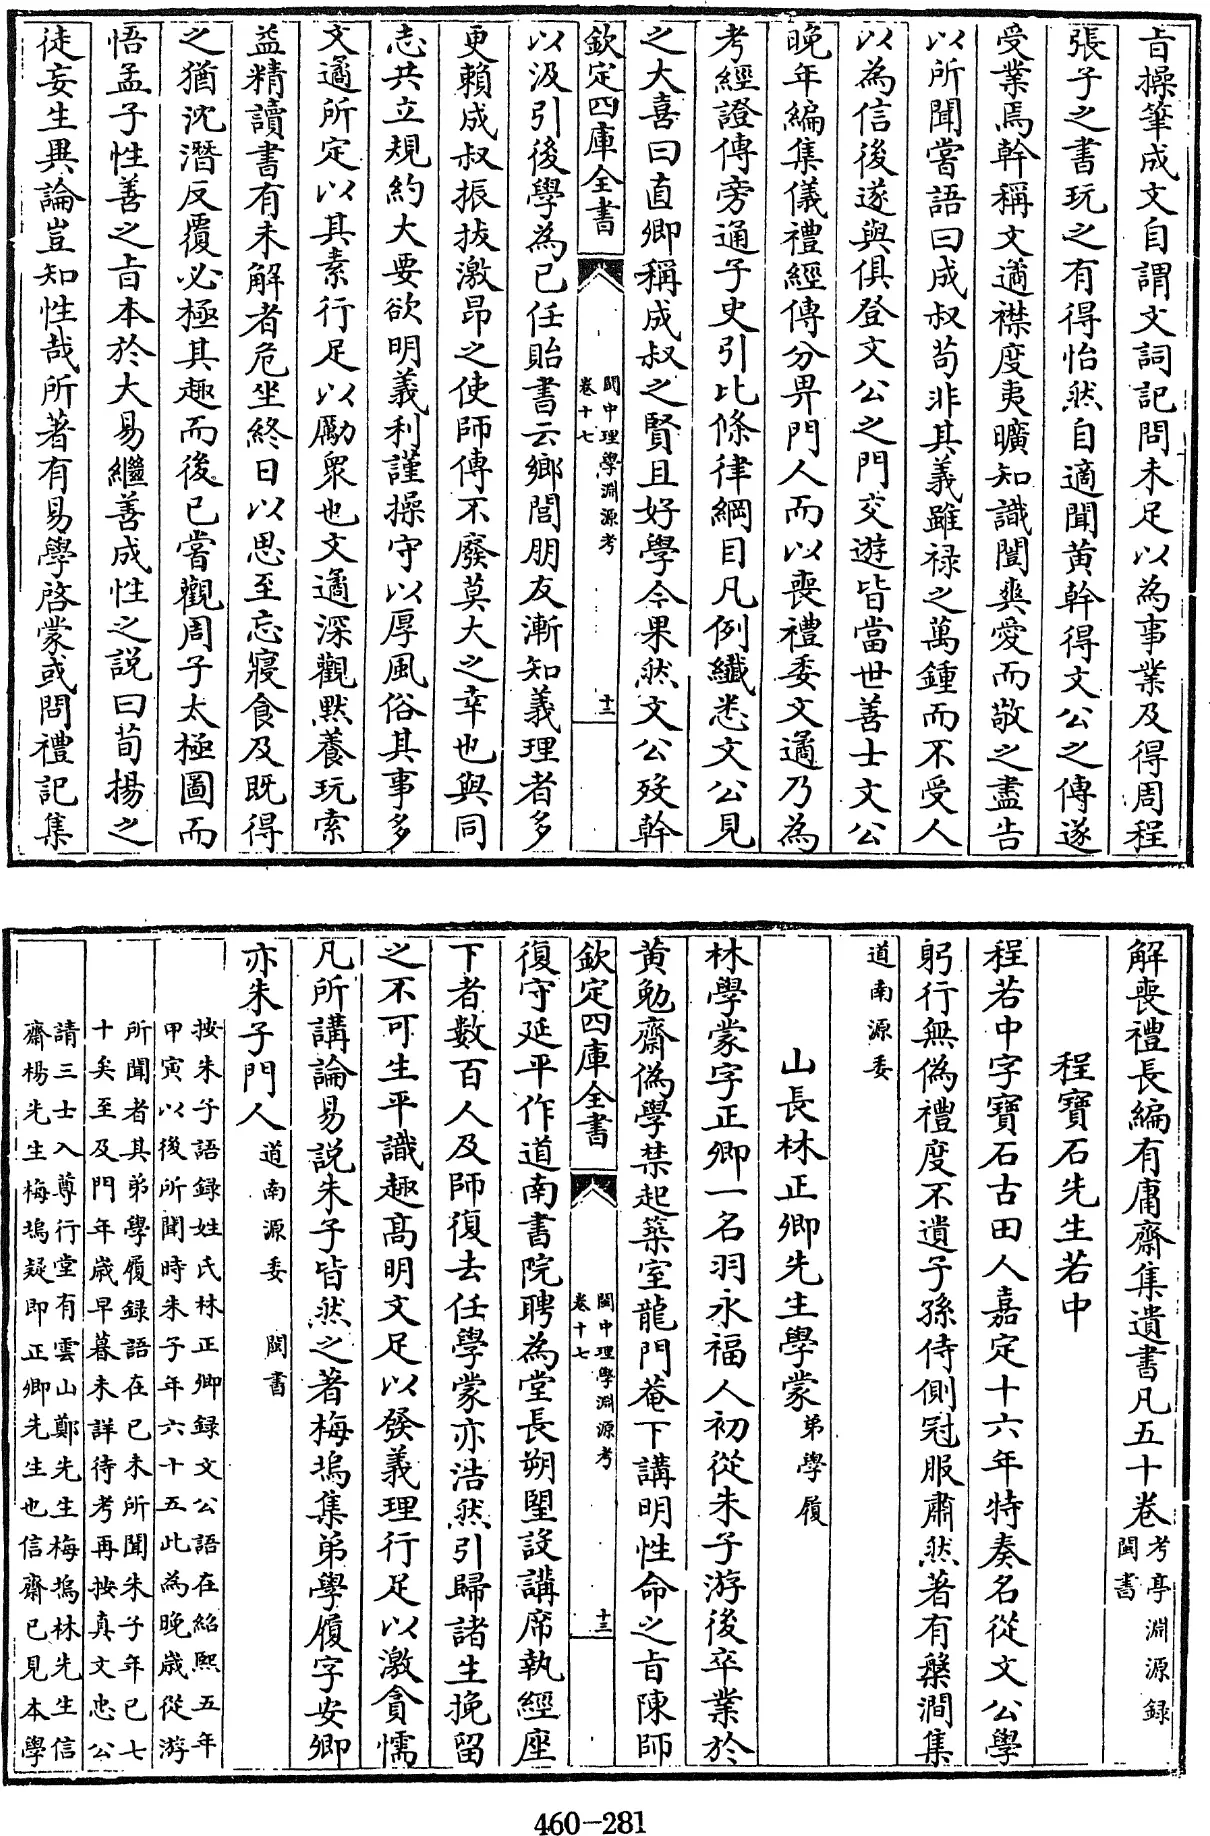 旨操筆成文自謂文詞記問未足以為事業及得周程
張子之書玩之有得怡然自適聞黃幹得文公之傳遂
受業焉幹稱文遹襟度夷曠知識闓爽愛而敬之盡告
以所聞嘗語曰成叔苟非其義雖祿之萬鍾而不受人
以為信後遂與俱登文公之門交遊皆當世善士文公
晩年編集儀禮經傳分畀門人而以喪禮委文遹乃為
考經證傳旁通子史引比條律綱目凡例纖悉文公見
之大喜曰直卿稱成叔之賢且好學今果然文公歿幹
欽定四庫全書
閩中理學淵源考
卷十七
十三
以汲引後學為已任貽書云鄉閭朋友漸知義理者多
更賴成叔振拔激昂之使師傳不廢莫大之幸也與同
志共立規約大要欲明義利謹操守以厚風俗其事多
文遹所定以其素行足以勵衆也文遹深觀默養玩索
益精讀書有未解者危坐終日以思至忘寢食及既得
之猶沈潛反覆必極其趣而後已嘗觀周子太極圖而
悟孟子性善之旨本於大易繼善成性之説曰荀揚之
徒妄生異論豈知性哉所著有易學啓蒙或問禮記集
解喪禮長編有庸齋集遺書凡五十卷考亭淵源録
閩書
程寶石先生若中
程若中字寶石古田人嘉定十六年特奏名從文公學
躬行無偽禮度不遺子孫侍側冠服肅然著有槃澗集
道南源委
山長林正卿先生學蒙弟學履
林學蒙字正卿一名羽永福人初從朱子游後卒業於
黃勉齋偽學禁起築室龍門菴下講明性命之旨陳師
欽定四庫全書
閩中理學淵源考
卷十七
十三
復守延平作道南書院聘為堂長朔朢設講席執經座
下者數百人及師復去任學蒙亦浩然引歸諸生挽留
之不可生平識趣髙明文足以發義理行足以激貪懦
凡所講論易説朱子皆然之著梅塢集弟學履字安卿
亦朱子門人道南源委 閩書
按朱子語録姓氏林正卿録文公語在紹熙五年
甲寅以後所聞時朱子年六十五此為晩歲從游
所聞者其弟學履録語在已未所聞朱子年已七
十矣至及門年歲早暮未詳待考再按真文忠公
請三士入尊行堂有雲山鄭先生梅塢林先生信
齋楊先生梅塢疑即正卿先生也信齋已見本學
460-281